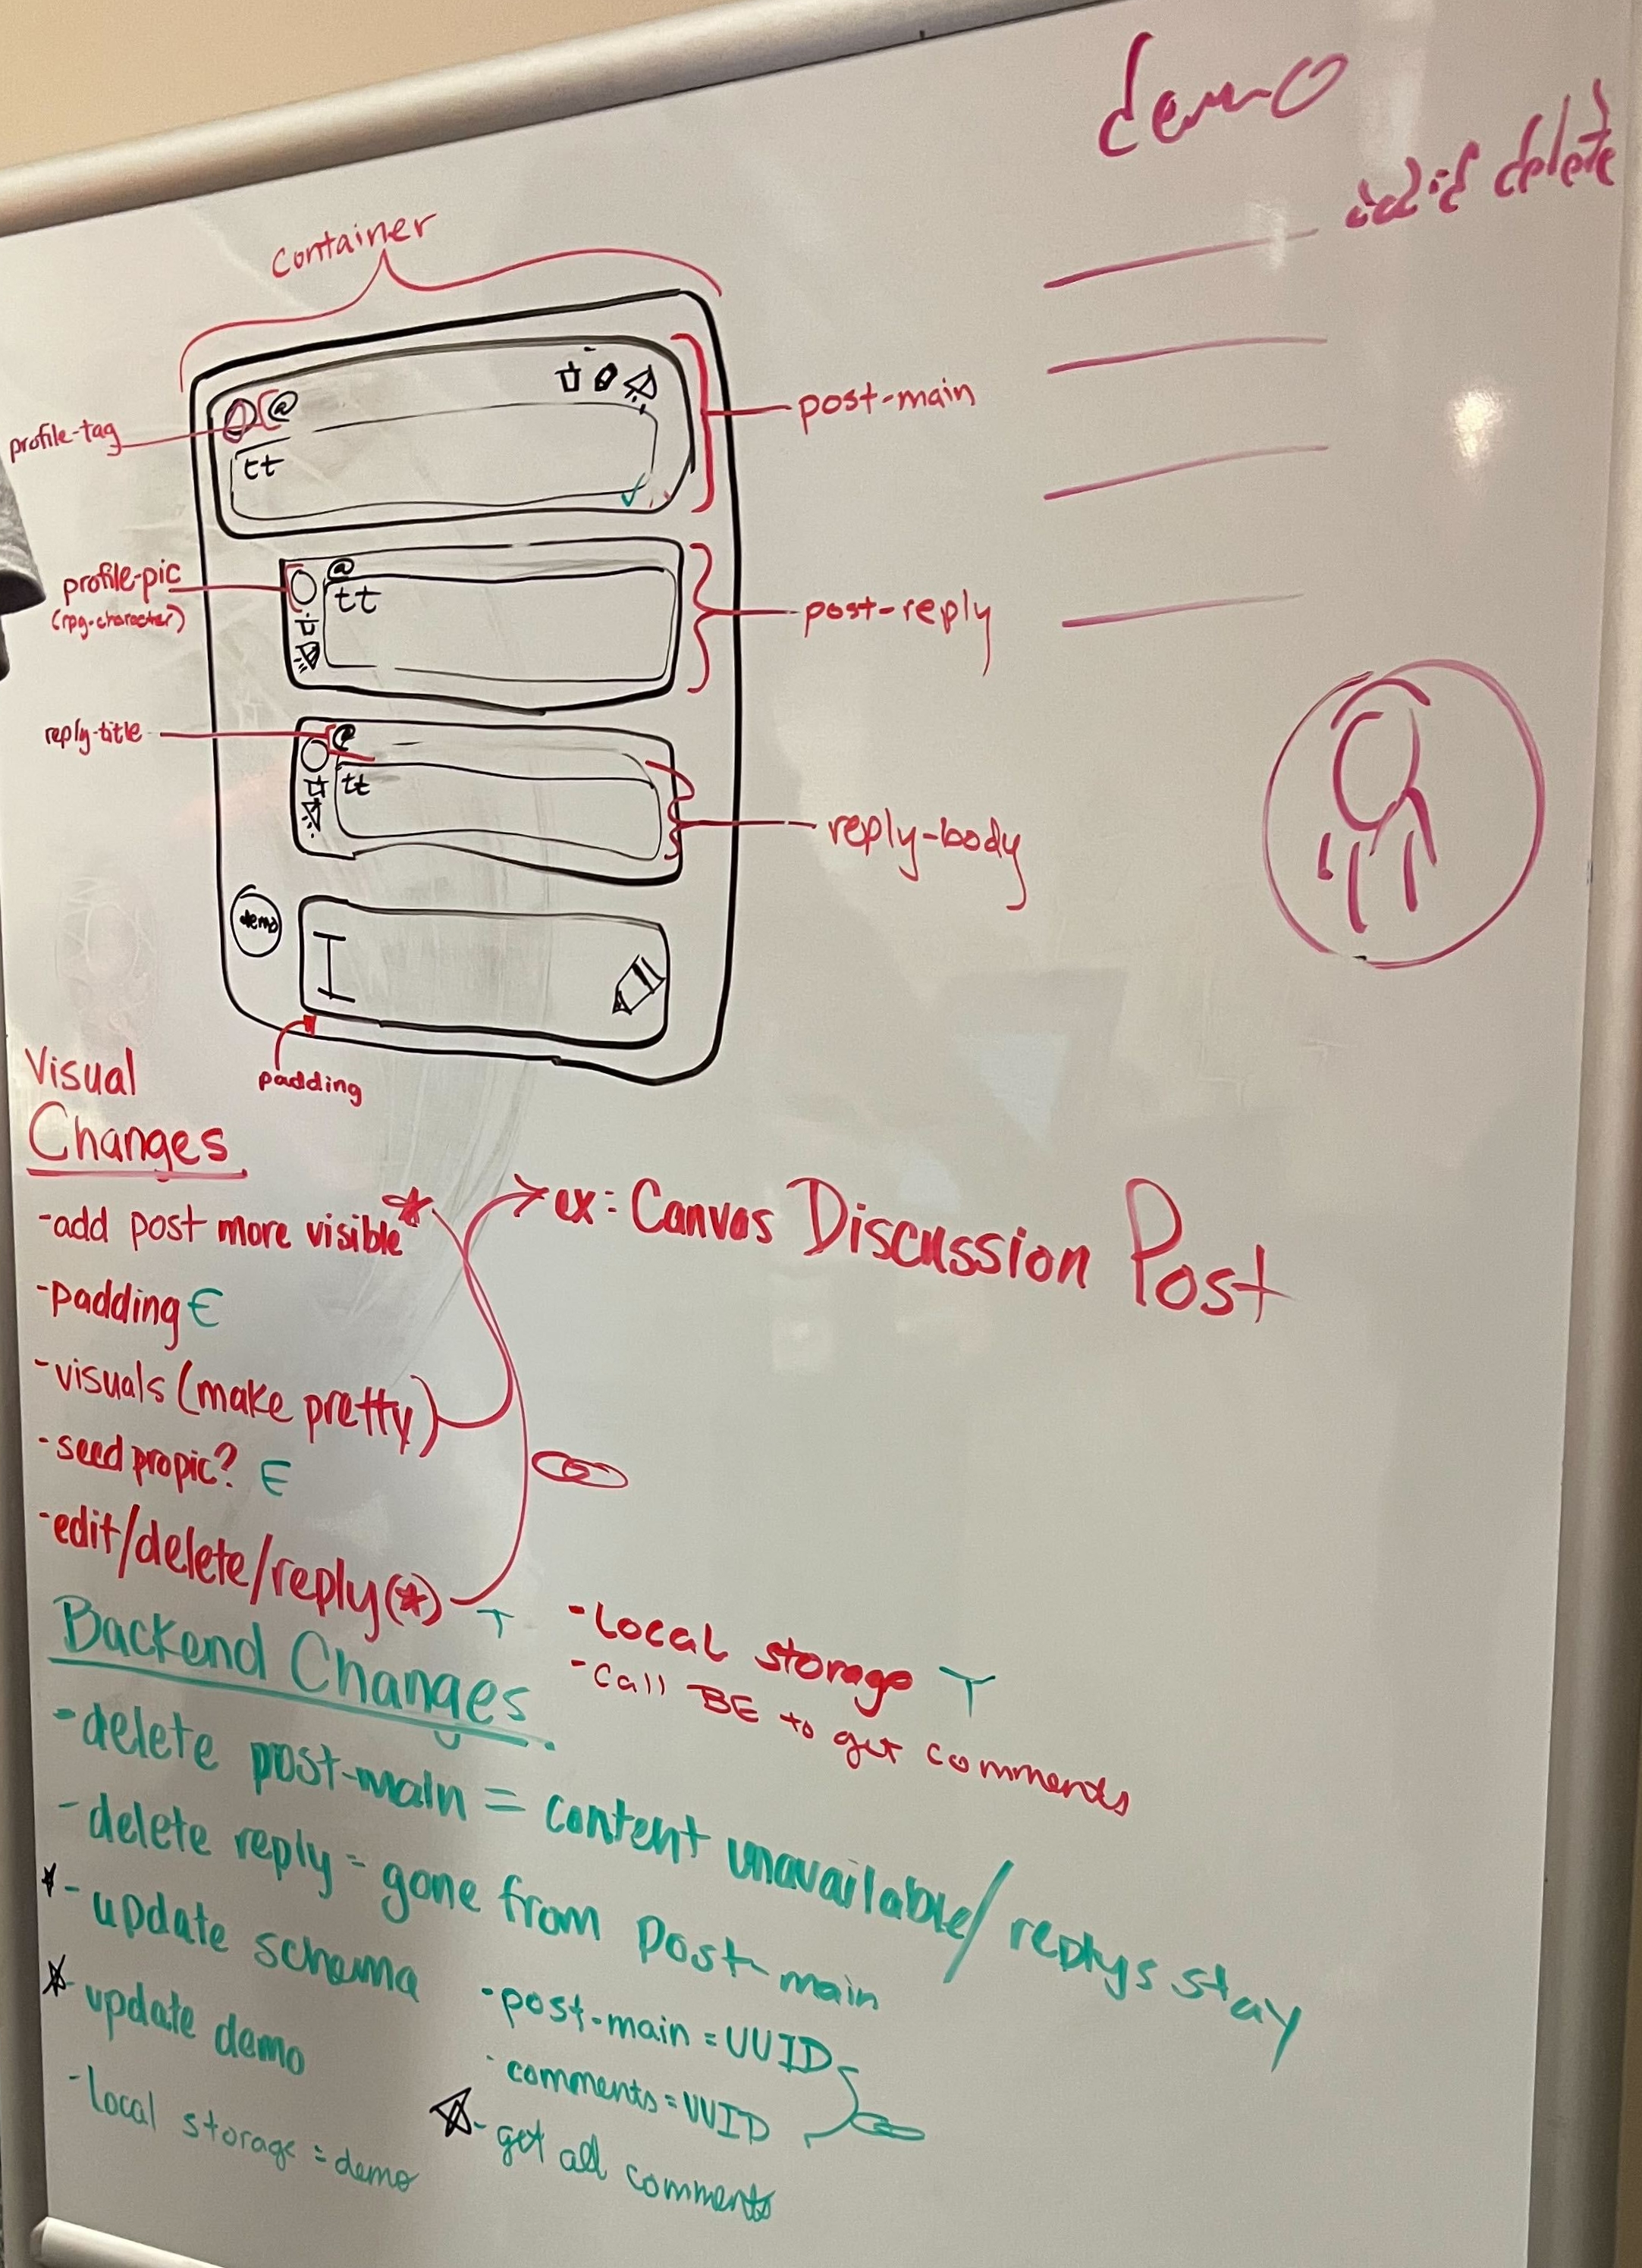 demo
delete
Container
@
profile-tag
post-main
tt
profile-pic
(rpg-character)
@
tt
post-reply
reply-title
@
tt
reply-body
demo
padding
Visual
Changes
-add post more visible*
ex: Canvas Discussion Post
-padding E
-visuals (make pretty)
-seed propic? E
-edit/delete/reply(*) T
-Local storage T
-Call BE to get comments
Backend Changes
-delete post-main = content unavailable/replys stay
-delete reply = gone from post-main
*-update schema
*-update demo
-Local storage = demo
-post-main = UUID
-comments = UUID
☆-get all comments